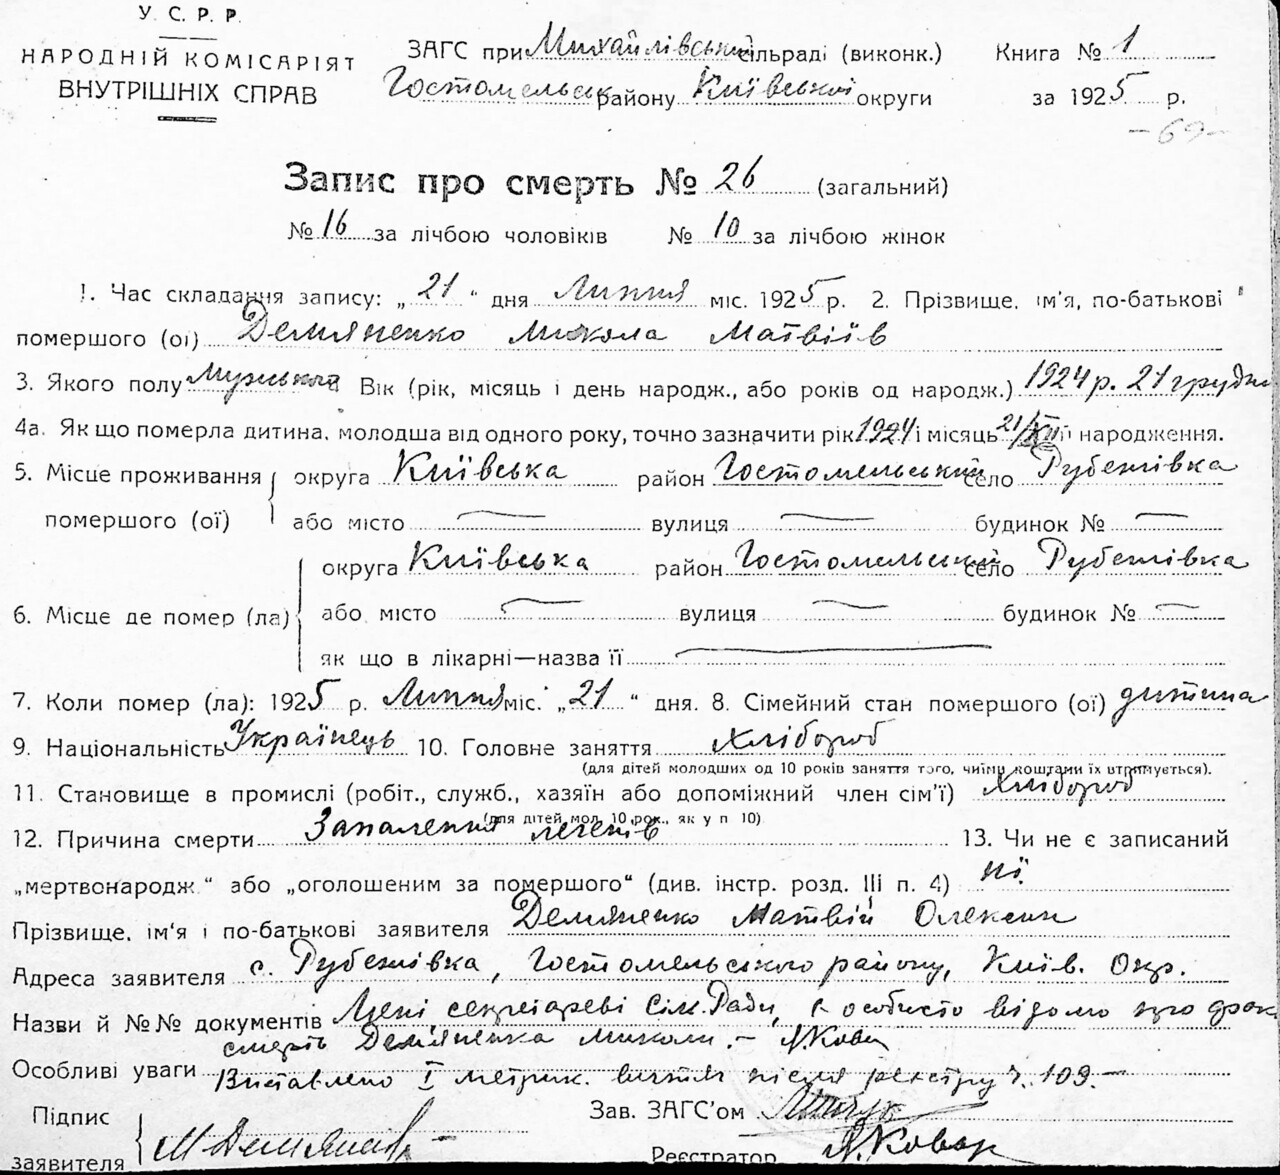 У. С. Р. Р.
НАРОДНІЙ КОМІСАРІЯТ
ВНУТРІШНІХ СПРАВ
ЗАГС при Михайлівській сільраді (виконк.) Книга № 1
Гостомельськ району Київської округи за 1925 р.
-69-
Запис про смерть № 26 (загальний)
№ 16 за лічбою чоловіків № 10 за лічбою жінок
1. Час складання запису: „21“ дня Липня міс. 1925 р. 2. Прізвище, ім'я, по-батькові
помершого (ої) Демяненко Микола Матвіїв
3. Якого полу Мужської Вік (рік, місяць і день народж., або років од народж.) 1924 р. 21 грудня
4а. Як що померла дитина, молодша від одного року, точно зазначити рік 1924 і місяць 21/XII її народження.
5. Місце проживання округа Київська район Гостомельський село Рубежівка
помершого (ої) або місто — вулиця — будинок № —
округа Київська район Гостомельський село Рубежівка
6. Місце де помер (ла) або місто — вулиця — будинок № —
як що в лікарні—назва її —
7. Коли помер (ла): 1925 р. Липня міс. „21“ дня. 8. Сімейний стан помершого (ої) дитина
9. Національність Українець 10. Головне заняття Хлібороб
(для дітей молодших од 10 років заняття того, чиїми коштами їх втримується).
11. Становище в промислі (робіт., служб., хазяїн або допоміжний член сім'ї) Хлібороб
(для дітей мол. 10 рок., як у п 10)
12. Причина смерти Запалення легенів 13. Чи не є записаний
„мертвонародж.“ або „оголошеним за помершого“ (див. інстр. розд. III п. 4) ні.
Прізвище, ім'я і по-батькові заявителя Демяненко Матвій Олексин
Адреса заявителя с. Рубежівка, Гостомельського району, Київ. Окр.
Назви й №№ документів Мені, секретареві Сіл. Ради, особисто відомо про
смерть Демяненка Миколи. —
Особливі уваги Виставлено I метрик. витяг після реєстру ч. 109. —
Підпис
заявителя М Демяненко
Зав. ЗАГС'ом
Реєстратор